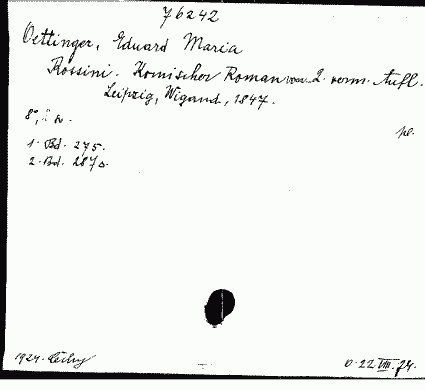 76242
Oettinger, Eduard Maria
Rossini. Komischer Roman von 2. verm. Aufl.
Leipzig, Wigand, 1847.
8°, 2 
pl.
1. Bd. 275.
2. Bd. 287 s.
1924.
D. 22. VIII. 74.